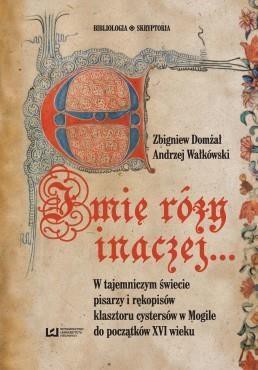 BIBLIOLOGIA ❖ SKRYPTORIA
Zbigniew Domżał
Andrzej Wałkówski
Imię róży
inaczej...
W tajemniczym świecie
pisarzy i rękopisów
klasztoru cystersów w Mogile
do początków XVI wieku
WYDAWNICTWO
UNIWERSYTETU
ŁÓDZKIEGO